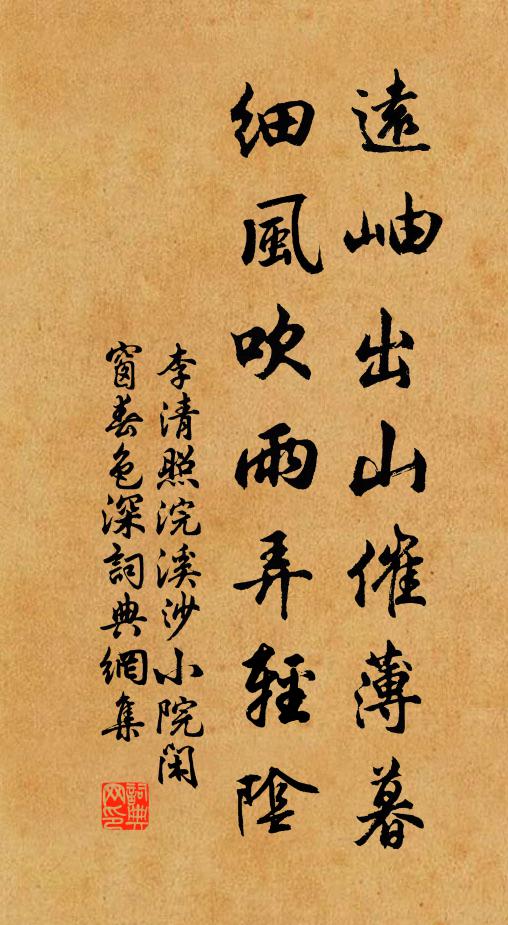 遠岫出山催薄暮
細風吹雨弄輕陰
李清照浣溪沙小院閑
窗春色深詞典網集
詞典
网印